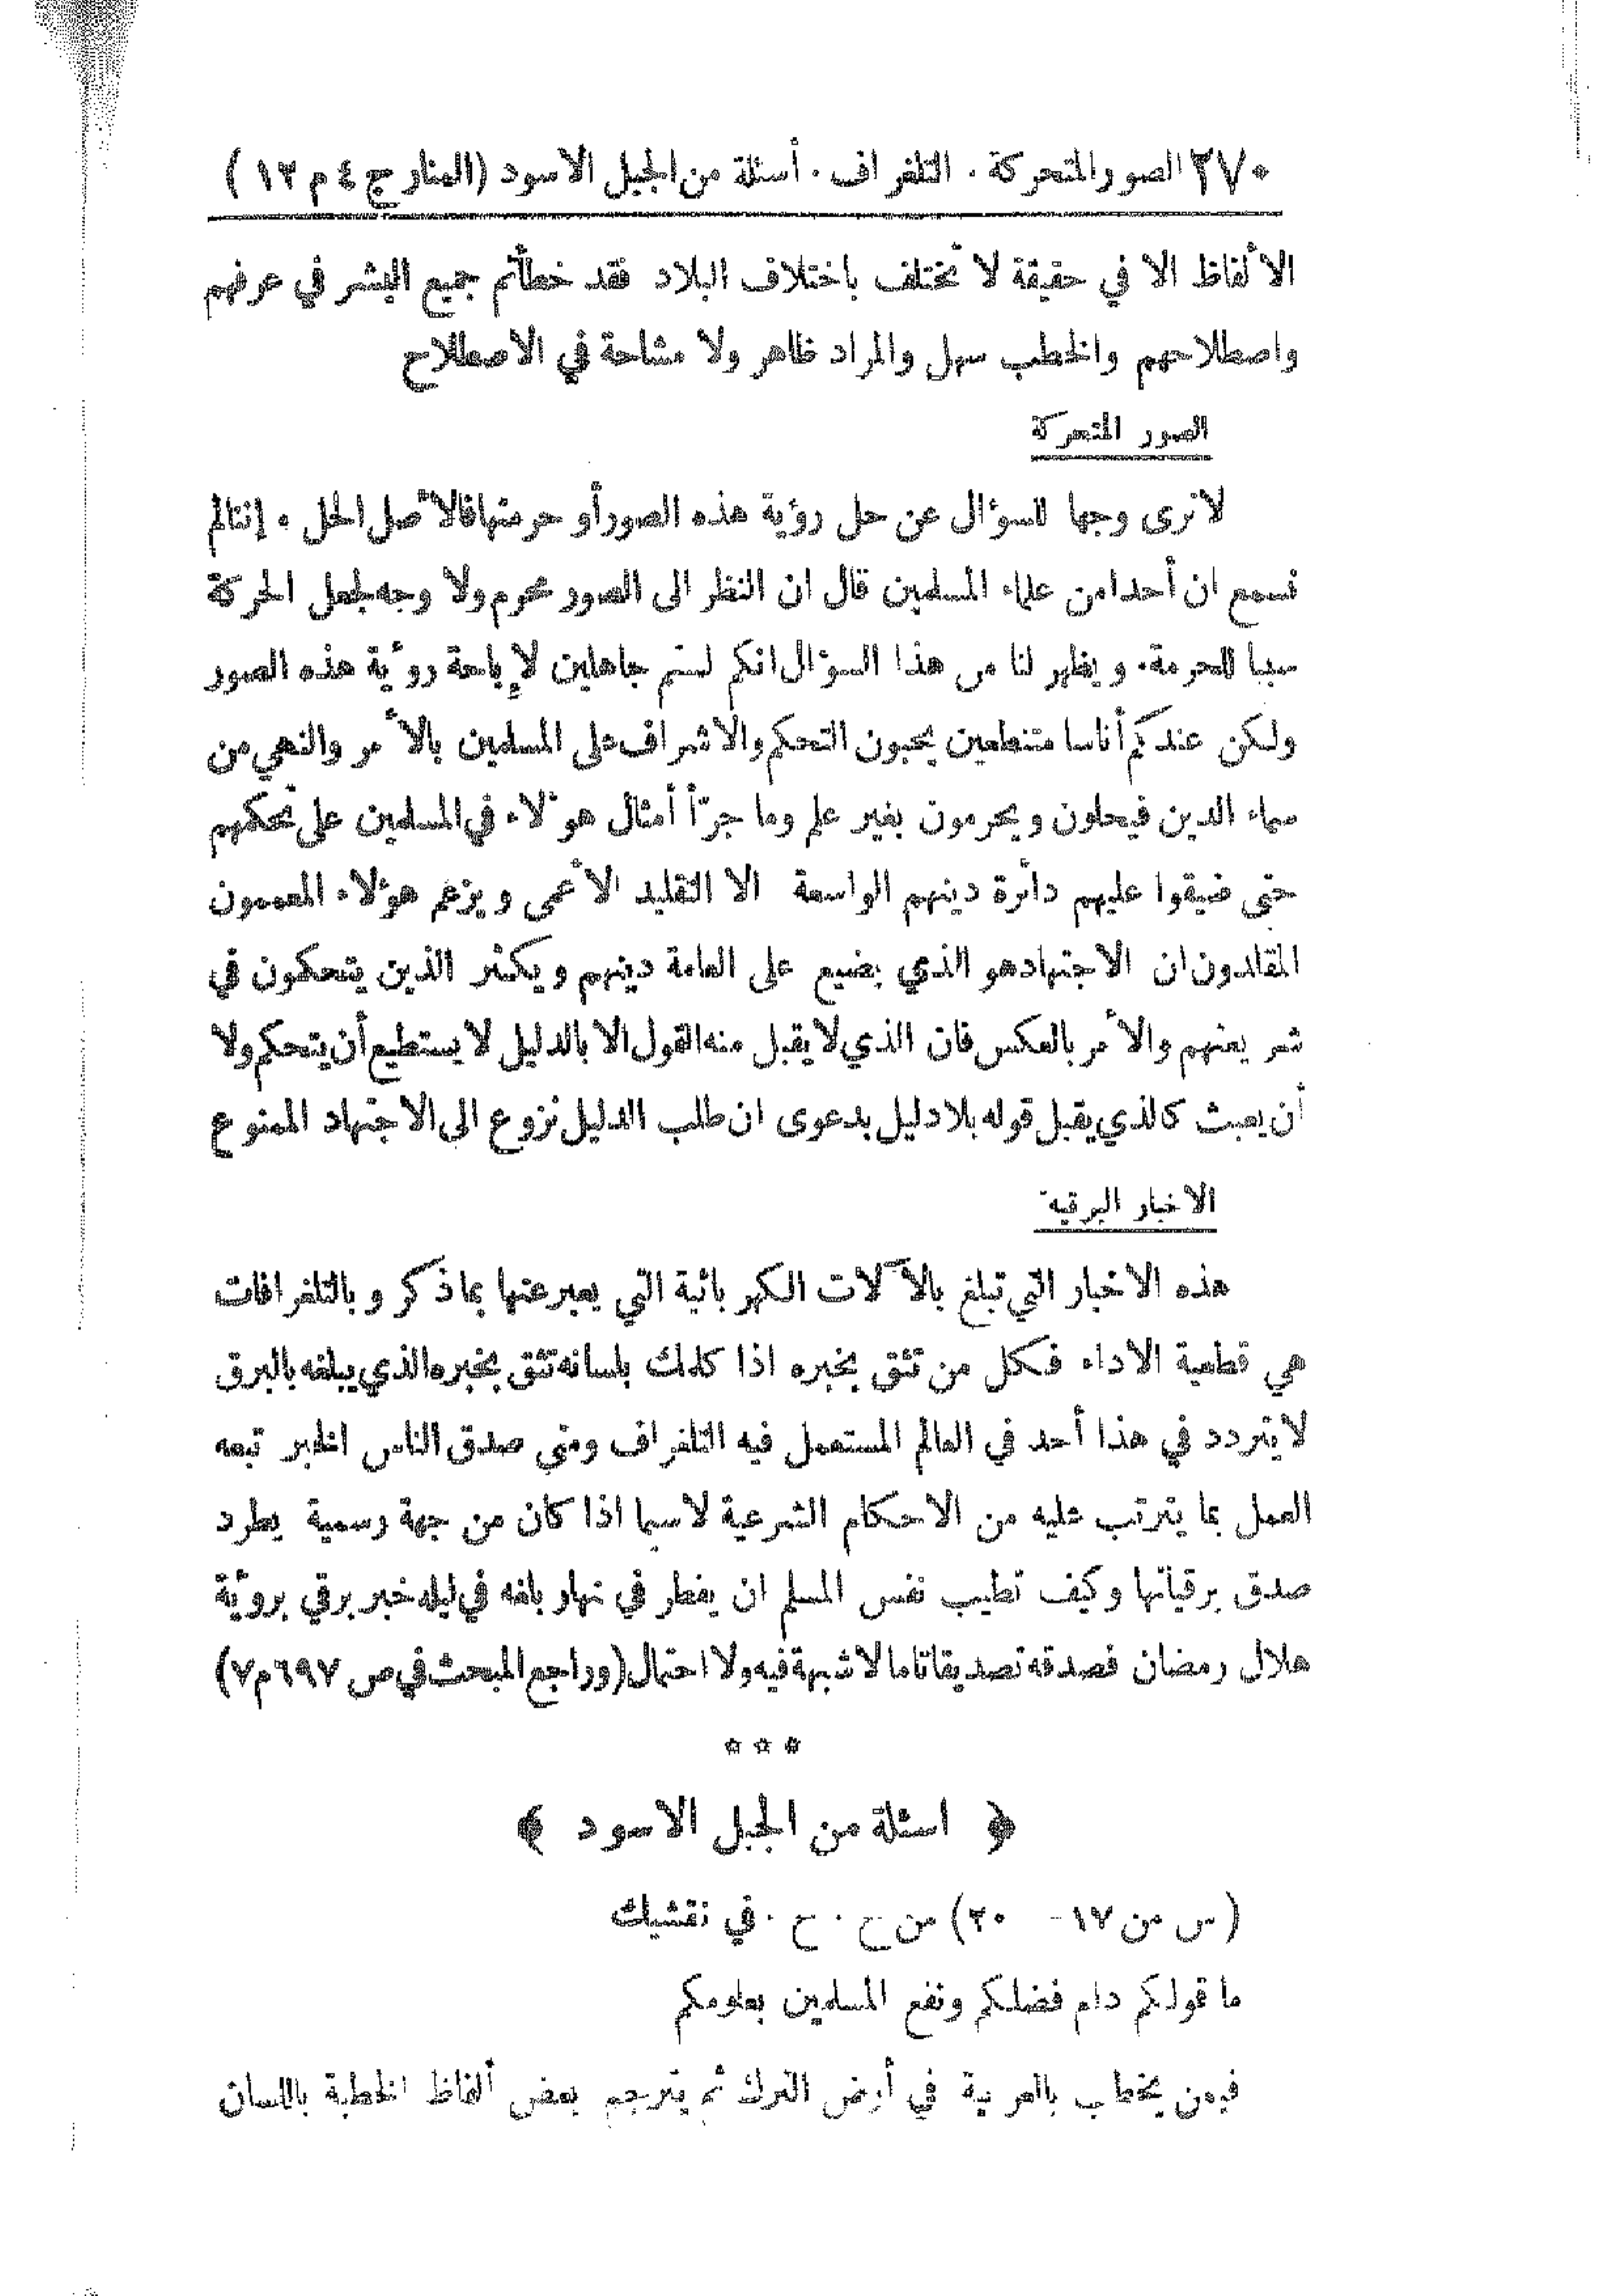 ٢٧٠ الصور المتحركة . التلغراف . أسئلة من الجبل الاسود (المنار ج ٤ م ١٣)
الألفاظ الا في حقيقة لا تختلف باختلاف البلاد فقد خطأتم جميع البشر في عرفهم
واصطلاحهم والخطب سهل والمراد ظاهر ولا مشاحة في الاصطلاح
الصور المتحركة
لا نرى وجها للسؤال عن حل رؤية هذه الصور أو حرمتها فالأصل الحل . إننا لم
نسمع ان أحدا من علماء المسلمين قال ان النظر الى الصور محرم ولا وجه لجعل الحركة
سببا للحرمة. ويظهر لنا من هذا السؤال انكم لستم جاهلين لإباحة رؤية هذه الصور
ولكن عندكم أناسا متنطعين يحبون التحكم والاشراف على المسلمين بالأمر والنهي من
سماء الدين فيحلون ويحرمون بغير علم وما جرّأ أمثال هؤلاء في المسلمين على تحكمهم
حتى ضيقوا عليهم دائرة دينهم الواسعة الا التقليد الأعمى ويزعم هؤلاء المعممون
المقلدون ان الاجتهاد هو الذي يضيع على العامة دينهم ويكثر الذين يتحكمون في
شريعتهم والأمر بالعكس فان الذي لا يقبل منه القول الا بالدليل لا يستطيع أن يتحكم ولا
أن يعبث كالذي يقبل قوله بلا دليل بدعوى ان طلب الدليل نزوع الى الاجتهاد الممنوع
الاخبار البرقية
هذه الاخبار التي تبلغ بالآلات الكهربائية التي يعبر عنها بما ذكر وبالتلغرافات
هي قطعية الاداء فكل من تثق بخبره اذا كلمك بلسانه تثق بخبره الذي يبلغه بالبرق
لا يتردد في هذا أحد في العالم المستعمل فيه التلغراف ومتى صدق الناس الخبر تبعه
العمل بما يترتب عليه من الاحكام الشرعية لا سيما اذا كان من جهة رسمية يطرد
صدق برقياتها وكيف تطيب نفس المسلم ان يفطر في نهار بلغه في ليله خبر برقي برؤية
هلال رمضان فصدقه تصديقا تاما لا شبهة فيه ولا احتمال (وراجع المبحث في ص ٦٩٧ م ٧)
* * *
﴿ اسئلة من الجبل الاسود ﴾
(س من ١٧ - ٢٠) من ح . ح . في نقشيك
ما قولكم دام فضلكم ونفع المسلمين بعلومكم
فيمن يخطب بالعربية في أرض الترك ثم يترجم بعض ألفاظ الخطبة باللسان